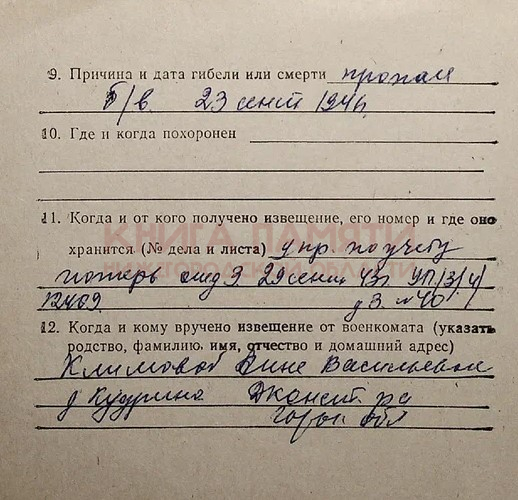 9. Причина и дата гибели или смерти пропал
б/в. 23 сент 194
10. Где и когда похоронен
11. Когда и от кого получено извещение, его номер и где оно
КНИГА ПАМЯТИ
хранится (№ дела и листа) упр. по учету
потерь 29 сент 43г. УП/3/4/
12469. д 3. л 40
12. Когда и кому вручено извещение от военкомата (указать
родство, фамилию, имя, отчество и домашний адрес)
Климовой Васильевне
д Кудрино ра
Горьк обл